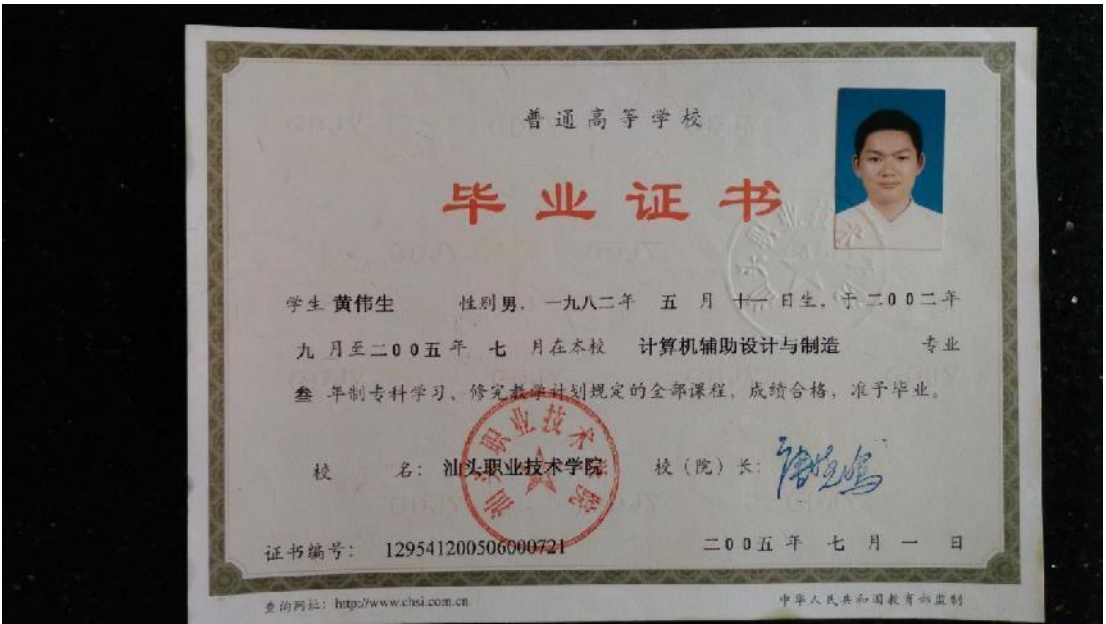 普通高等学校
毕业证书
学生 黄伟生 性别 男, 一九八二年 五 月 十一 日生, 于二00二年
九 月至二00五年 七 月在本校 计算机辅助设计与制造 专业
叁 年制专科学习, 修完教学计划规定的全部课程, 成绩合格, 准予毕业。
汕头职业技术学院
校 名: 汕头职业技术学院 校(院)长:
证书编号: 129541200506000721 二00五年 七 月 一 日
查询网址: http://www.chsi.com.cn 中华人民共和国教育部监制